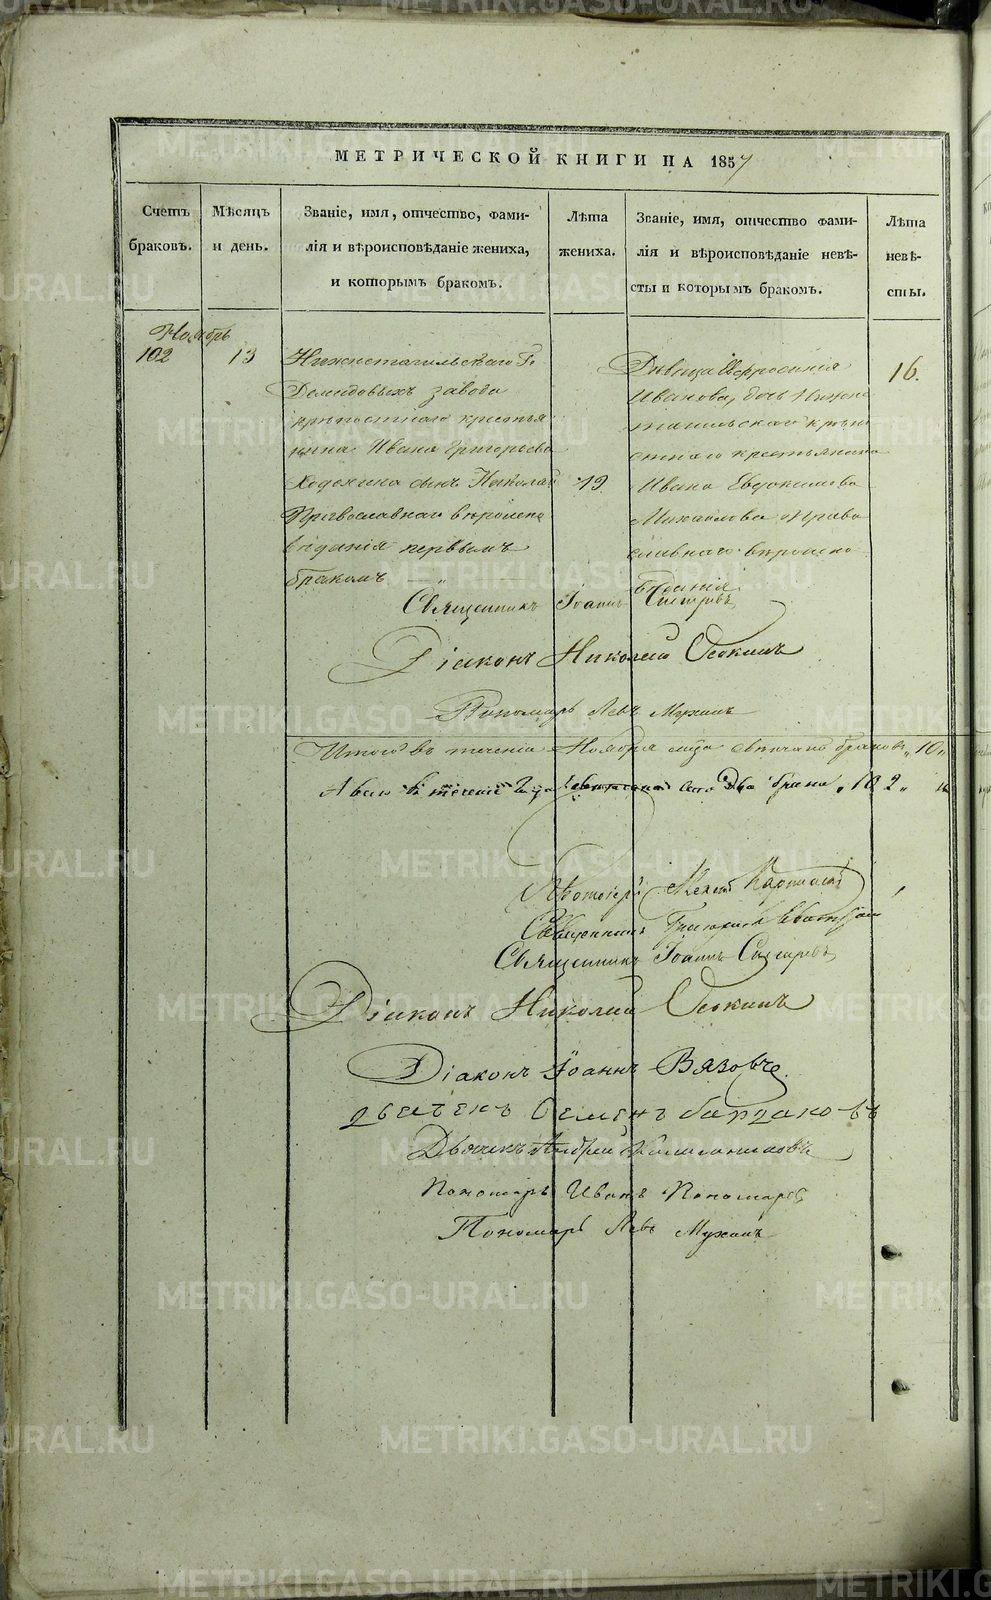 МЕТРИЧЕСКОЙ КНИГИ НА 1857
Счетъ браковъ.
Мѣсяцъ и день.
Званіе, имя, отчество, фами-
лія и вѣроисповѣданіе жениха,
и которымъ бракомъ.
Лѣта жениха.
Званіе, имя, отчество фами-
лія и вѣроисповѣданіе невѣ-
сты и которымъ бракомъ.
Лѣта невѣ-
сты.
Ноябрь
102
13
Нижнетагильскаго Г.
Демидовыхъ завода
крѣпостнаго крестья
нина Ивана Григорьева
сынъ Николай
Православнаго вѣроиспо
вѣданія первымъ
бракомъ
19
Дѣвица Евфросинія
Иванова, дочь Нижне
тагильскаго крѣпо
стнаго крестьянина
Ивана Евдокимова
Михайлова Право
славнаго вѣроиспо
вѣданія
16.
Священникъ Іоаннъ
Діаконъ Николай Осокинъ
Пономарь Левъ Мухинъ
Итого въ теченіи Ноября м̃ца браковъ „10„
А всего въ теченіе года сто два брака „102„
Протоіерей
Священникъ
Священникъ Іоаннъ
Діаконъ Николай Осокинъ
Діаконъ Іоаннъ
Семенъ
Дьячекъ Андрей
Пономарь Иванъ Пономаревъ
Пономарь Левъ Мухинъ
METRIKI.GASO-URAL.RU